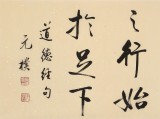 之行始
於足下
道德经句
元樸